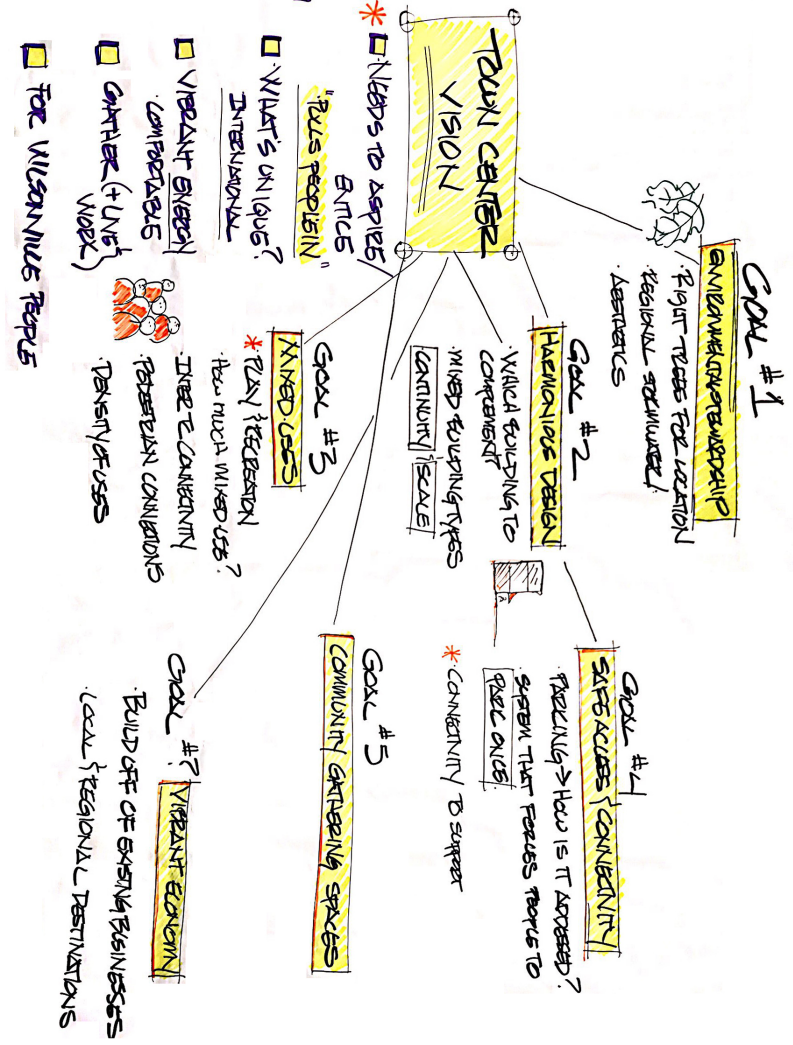 TOWN CENTER
VISION
* NEEDS TO ASPIRE
ENTICE
"PULLS PEOPLE IN"
WHAT'S UNIQUE?
INTERNATIONAL
VIBRANT ENERGY
· COMFORTABLE
GATHER (+ LIVE &
WORK)
FOR WILSONVILLE PEOPLE
GOAL #1
ENVIRONMENTAL STEWARDSHIP
· RIGHT TREES FOR LOCATION
· REGIONAL STORMWATER/
· AESTHETICS
GOAL #2
HARMONIOUS DESIGN
· WHICH BUILDING TO
COMPLEMENT
· MIXED BUILDING TYPES
CONTINUITY & SCALE
GOAL #3
MIXED USES
* PLAY & RECREATION
· HOW MUCH MIXED USE?
· CONNECTIVITY
· PEDESTRIAN CONNECTIONS
· DENSITY OF USES
GOAL #4
SAFE ACCESS & CONNECTIVITY
· PARKING → HOW IS IT ADDRESSED?
· SYSTEM THAT FORCES PEOPLE TO
PARK ONCE
* CONNECTIVITY TO SUPPORT
GOAL #5
COMMUNITY GATHERING SPACES
GOAL #? VIBRANT ECONOMY
· BUILD OFF OF EXISTING BUSINESSES
· LOCAL & REGIONAL DESTINATIONS